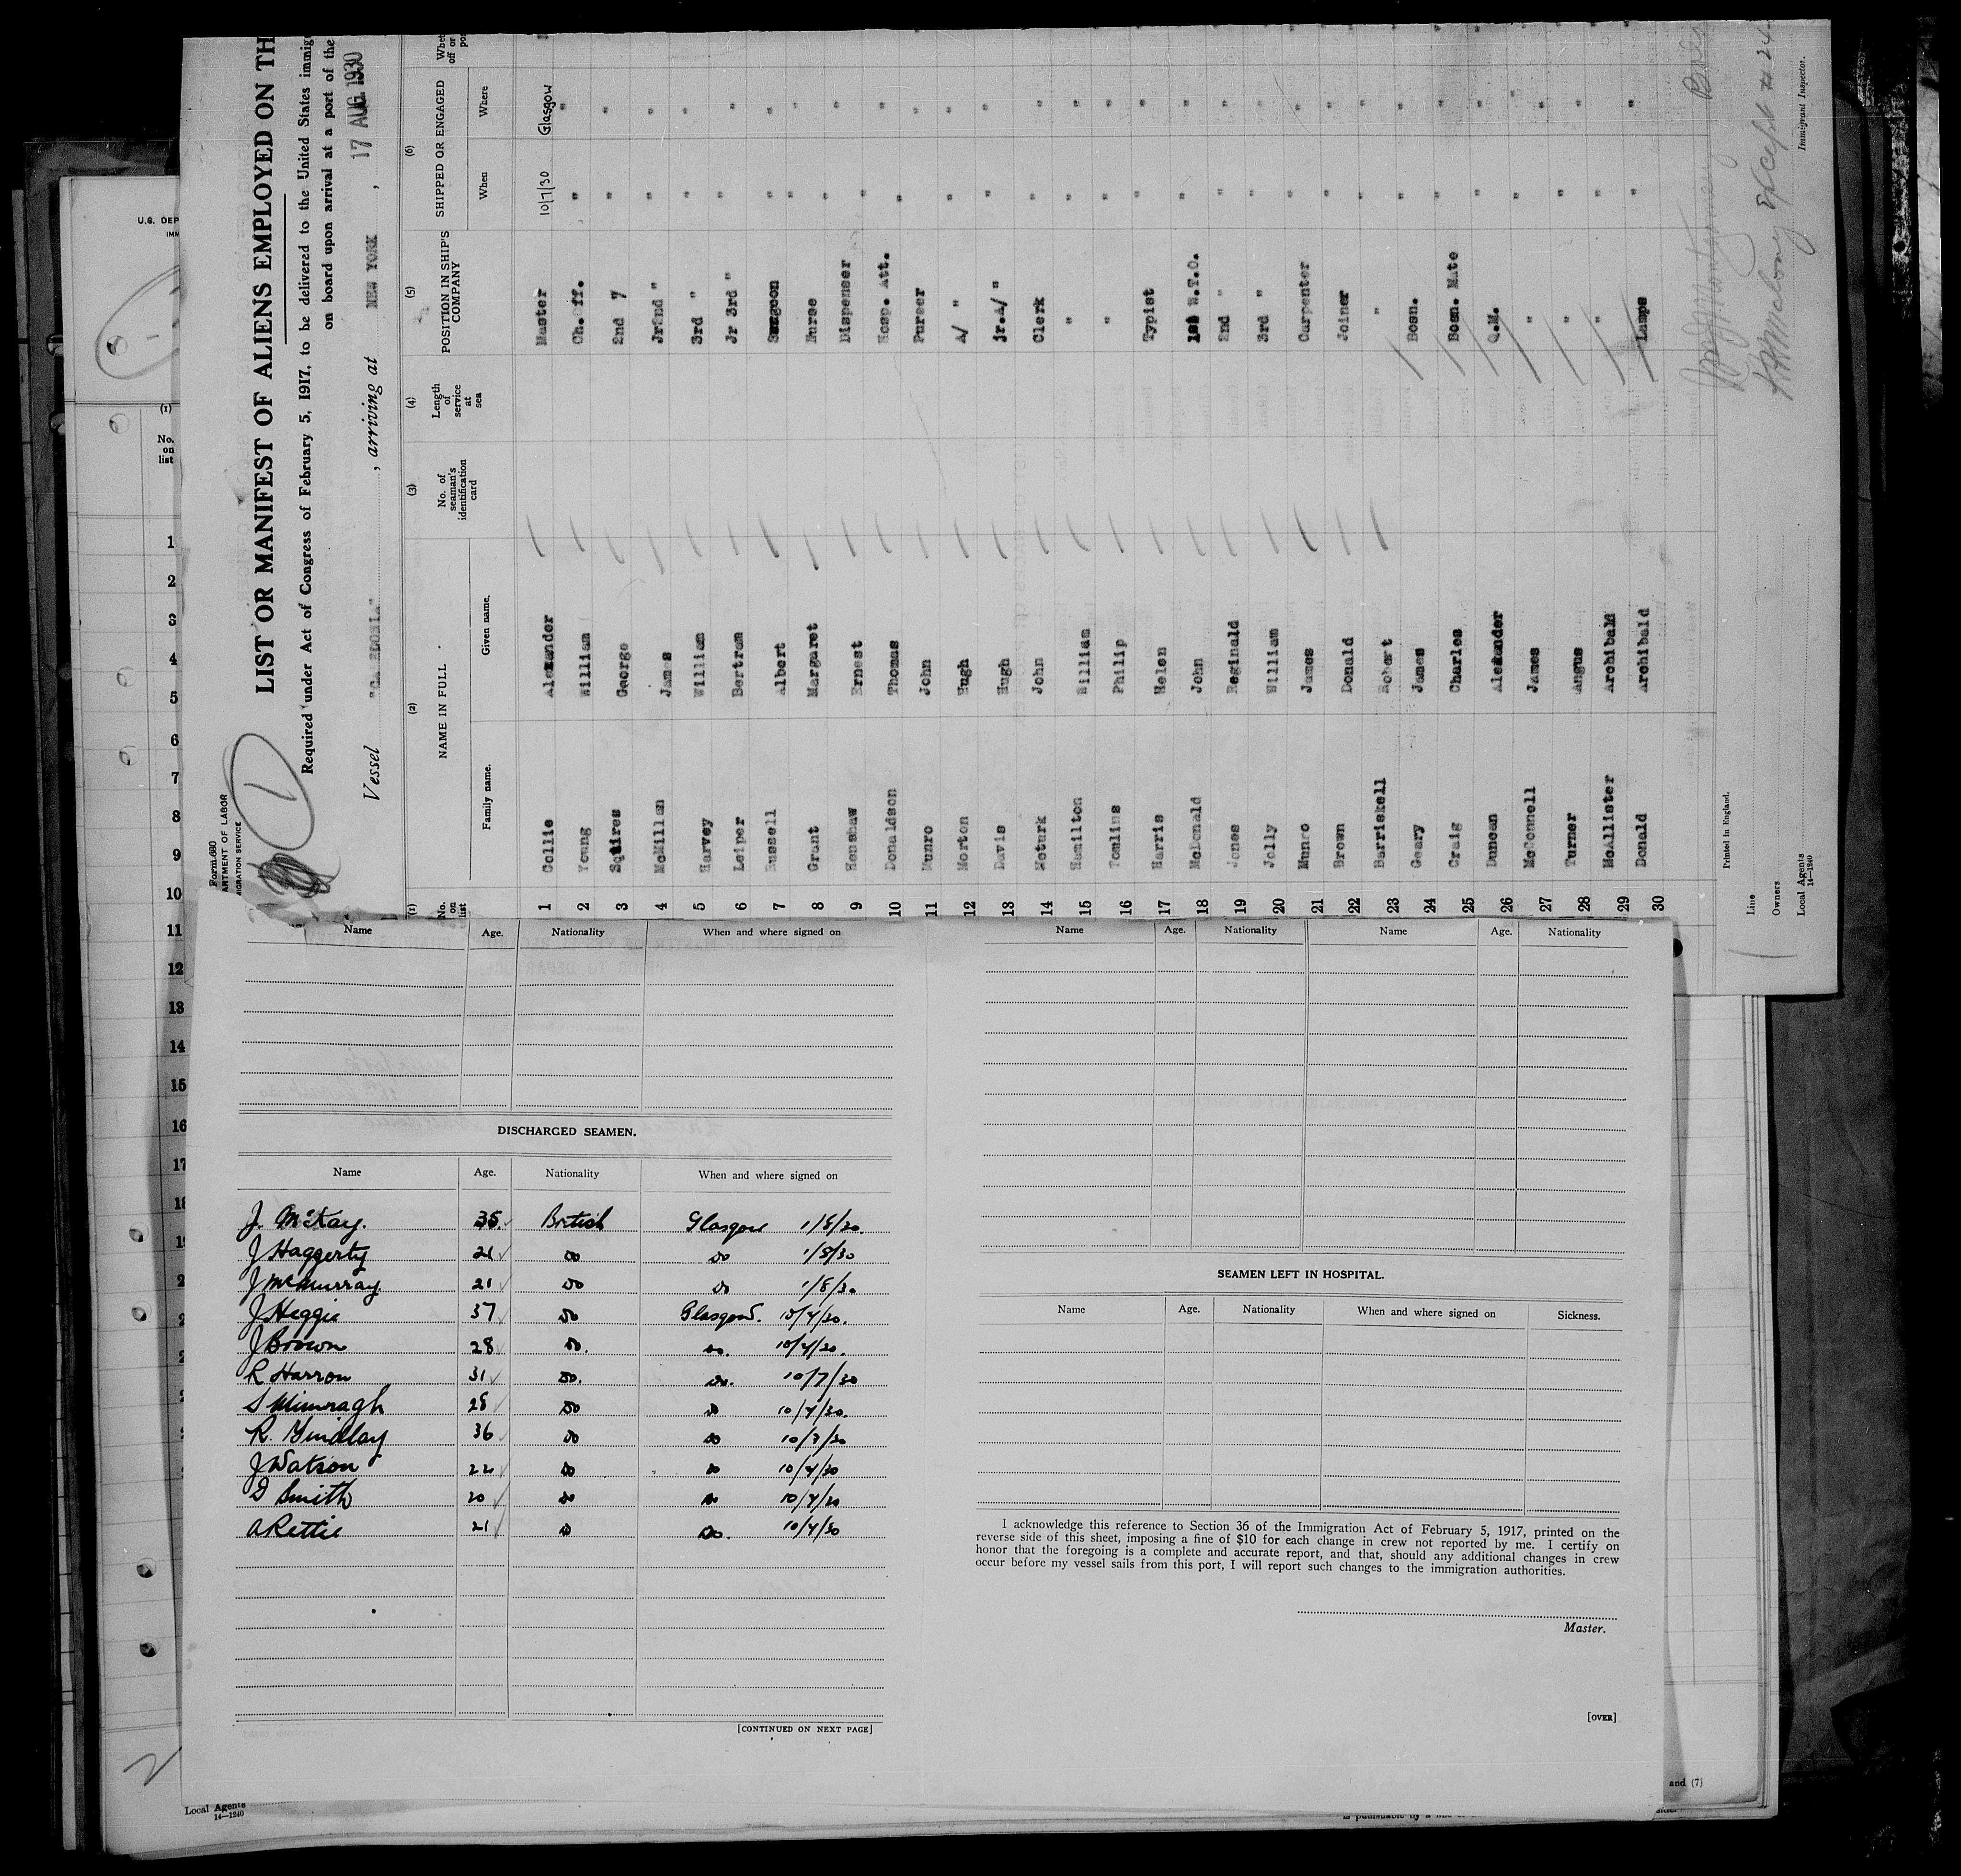 Form 680
U.S. DEPARTMENT OF LABOR
IMMIGRATION SERVICE
LIST OR MANIFEST OF ALIENS EMPLOYED ON TH
Required under Act of Congress of February 5, 1917, to be delivered to the United States immig
on board upon arrival at a port of the
Vessel "CALEDONIA", arriving at NEW YORK, 17 AUG 1930
(1) (2) (3) (4) (5) (6)
No. on list NAME IN FULL No. of seaman's identification card Length of service at sea POSITION IN SHIP'S COMPANY SHIPPED OR ENGAGED Whet off or po
Family name. Given name. When Where
1 Collie Alexander Master 10/7/30 Glasgow
2 Young William Ch. Off. " "
3 Squires George 2nd " "
4 McMillan James Jr2nd " " "
5 Harvey William 3rd " " "
6 Leiper Bertram Jr 3rd " " "
7 Russell Albert Surgeon " "
8 Grant Margaret Nurse " "
9 Henshaw Ernest Dispenser " "
10 Donaldson Thomas Hosp. Att. " "
11 Munro John Purser " "
12 Morton Hugh A/ " " "
13 Davis Hugh Jr.A/ " " "
14 Meturk John Clerk " "
15 Hamilton William " " "
16 Tomlins Philip " " "
17 Harris Helen Typist " "
18 McDonald John 1st W.T.O. " "
19 Jones Reginald 2nd " " "
20 Jolly William 3rd " " "
21 Munro James Carpenter " "
22 Brown Donald Joiner " "
23 Barriskell Robert " " "
24 Geary James Bosn. " "
25 Craig Charles Bosn. Mate " "
26 Duncan Alexander Q.M. " "
27 McConnell James " " "
28 Turner Angus " " "
29 McAllister Archibald " " "
30 Donald Archibald Lamps " "
Except
Printed in England.
Line
Owners
Local Agents
14—1240
Immigrant Inspector.
U.S. DEP
IMM
(1)
No. on list
1
2
3
4
5
6
7
8
9
10
11
12
13
14
15
16
17
Name Age. Nationality When and where signed on
DISCHARGED SEAMEN.
Name Age. Nationality When and where signed on
J. McKay. 35 British Glasgow 1/8/30.
J Haggerty 21 Do Do 1/8/30
J McMurray 21 Do Do 1/8/30
J Heggie 37 Do Glasgow. 10/7/30.
J Brown 28 Do. Do. 10/7/30.
R Harron 31 Do. Do. 10/7/30
28 Do Do 10/7/30.
R. Findlay 36 Do Do 10/7/30
J Watson 22 Do Do 10/7/30
D Smith 20 Do Do 10/7/30
A Rettie 21 Do Do. 10/7/30
[CONTINUED ON NEXT PAGE]
Name Age. Nationality Name Age. Nationality
SEAMEN LEFT IN HOSPITAL.
Name Age. Nationality When and where signed on Sickness.
I acknowledge this reference to Section 36 of the Immigration Act of February 5, 1917, printed on the
reverse side of this sheet, imposing a fine of $10 for each change in crew not reported by me. I certify on
honor that the foregoing is a complete and accurate report, and that, should any additional changes in crew
occur before my vessel sails from this port, I will report such changes to the immigration authorities.
Master.
[OVER]
Local Agents
14—1240
and (7)